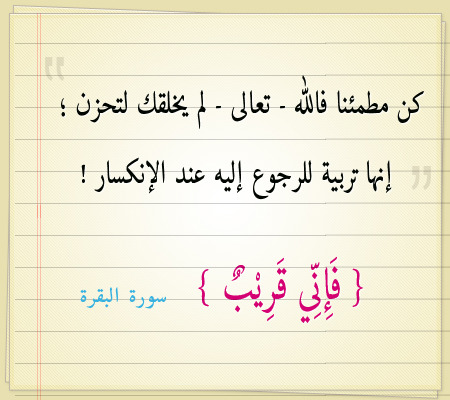 كن مطمئنا فالله - تعالى - لم يخلقك لتحزن ؛
إنها تربية للرجوع إليه عند الإنكسار !
{ فَإِنِّي قَرِيْبٌ } سورة البقرة